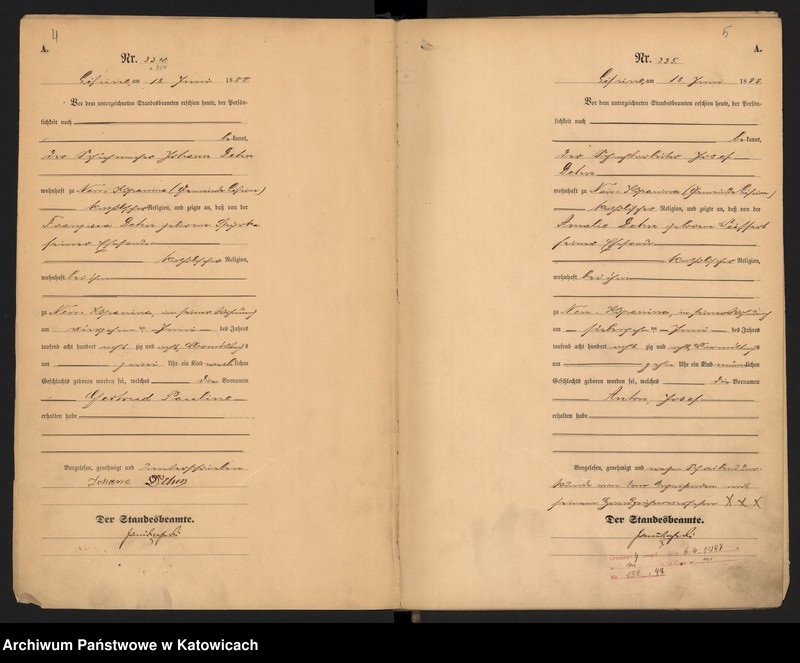 4
A.
Nr. 334
am 18 Juni 1888.
Vor dem unterzeichneten Standesbeamten erschien heute, der Persön-
lichkeit nach
bekannt,
der Schuhmacher Johann
wohnhaft zu Neu-Kopanina (Gemeinde
katholischer Religion, und zeigte an, daß von der
geborene
seiner Ehefrau
katholischer Religion,
wohnhaft bei ihm
zu Neu-Kopanina, in seiner Wohnung
am vierzehnten Juni des Jahres
tausend acht hundert achtzig und acht, Vormittags
um Uhr ein Kind weiblichen
Geschlechts geboren worden sei, welches die Vornamen
Gertrud Pauline
erhalten habe
Vorgelesen, genehmigt und unterschrieben
Johann
Der Standesbeamte.
5
A.
Nr. 335
am 18 Juni 1888.
Vor dem unterzeichneten Standesbeamten erschien heute, der Persön-
lichkeit nach
bekannt,
der Josef
wohnhaft zu Neu-Kopanina (Gemeinde
katholischer Religion, und zeigte an, daß von der
Amalie geborene Seiffert
seiner Ehefrau
katholischer Religion,
wohnhaft bei ihm
zu Neu-Kopanina, in seiner Wohnung
am siebzehnten Juni des Jahres
tausend acht hundert achtzig und acht, Vormittags
um zehn Uhr ein Kind männlichen
Geschlechts geboren worden sei, welches die Vornamen
Anton Josef
erhalten habe
Vorgelesen, genehmigt und wegen Schreibensun-
kunde von dem Anzeigenden mit
seinem Handzeichen versehen X X X
Der Standesbeamte.
6. 4. 1948
Archiwum Państwowe w Katowicach